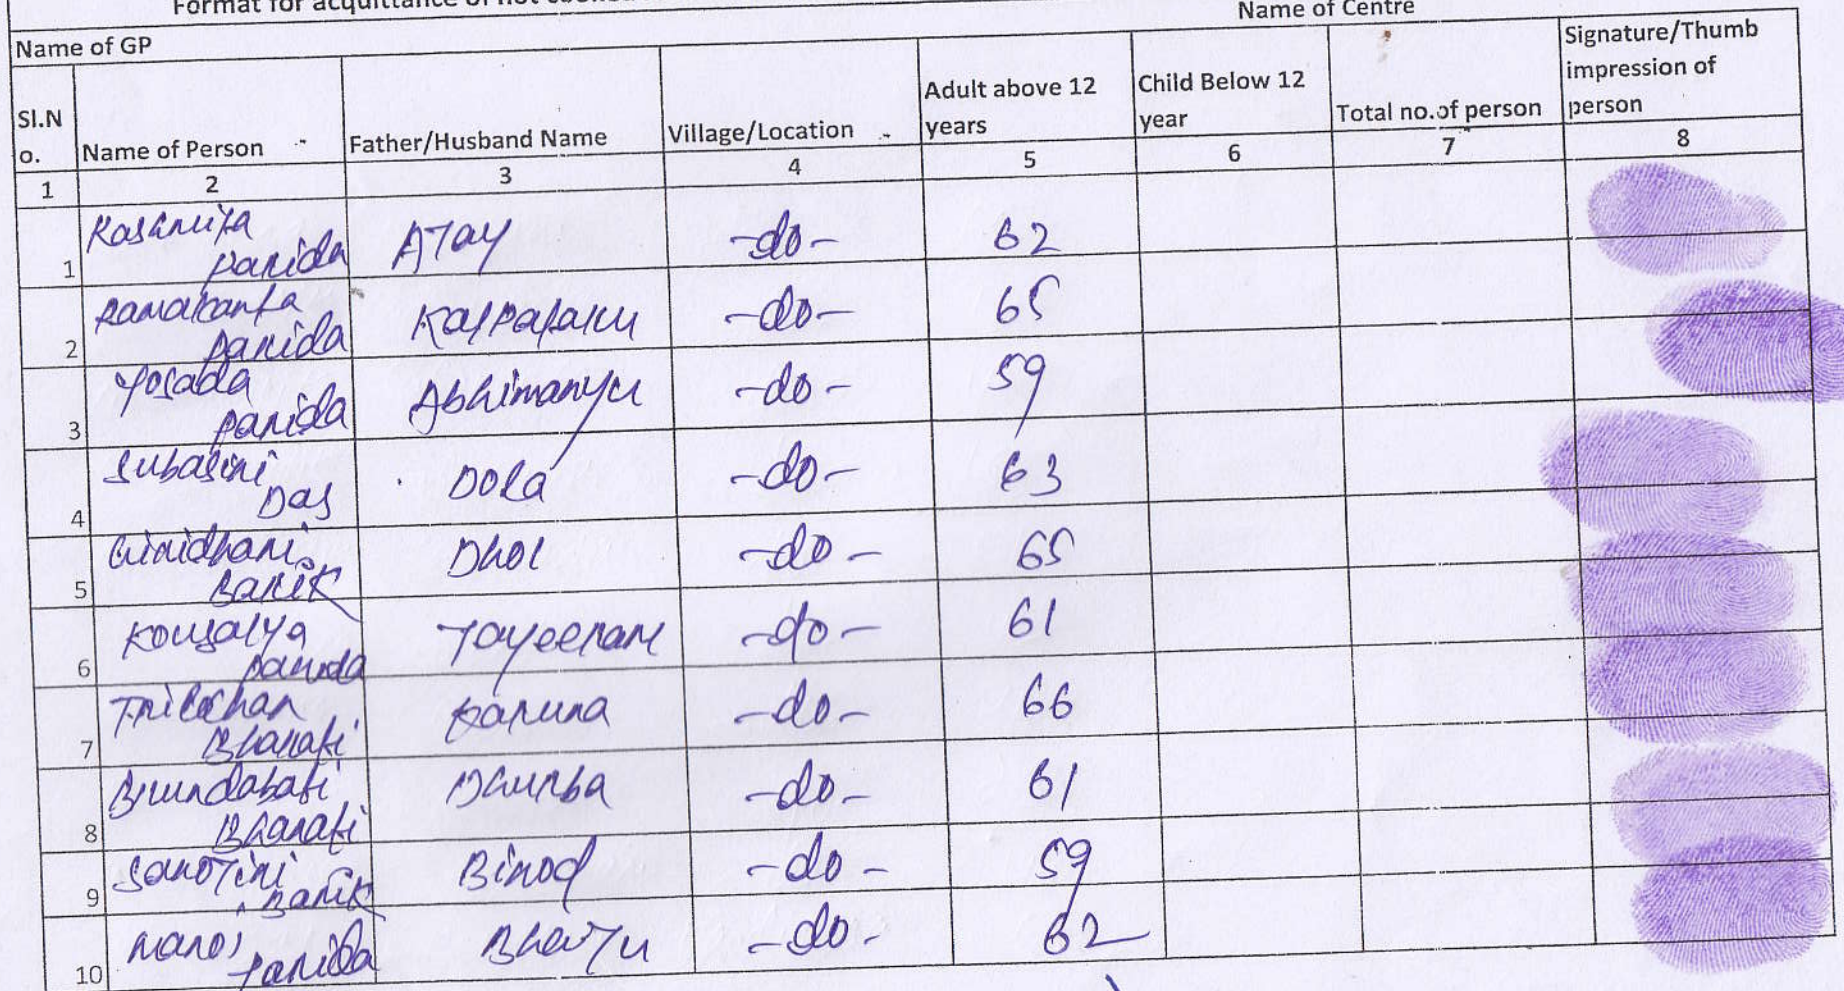 Format for acquittance of hot cooked
Name of GP Name of Centre
Sl.N o. Name of Person Father/Husband Name Village/Location Adult above 12 years Child Below 12 year Total no.of person Signature/Thumb impression of person
1 2 3 4 5 6 7 8
1 Parida AJay -do- 62
2 Ramakanta Parida Kalpataru -do- 65
3 Yosada Parida Abhimanyu -do- 59
4 Subasini Das Dola -do- 63
5 Giridhari Barik Dhol -do- 65
6 Kousalya Parida Jayeeram -do- 61
7 Trilochan Bharati Karuna -do- 66
8 Brundabati Bharati Dhurba -do- 61
9 SaroJini Barik Binod -do- 59
10 Parida -do- 62